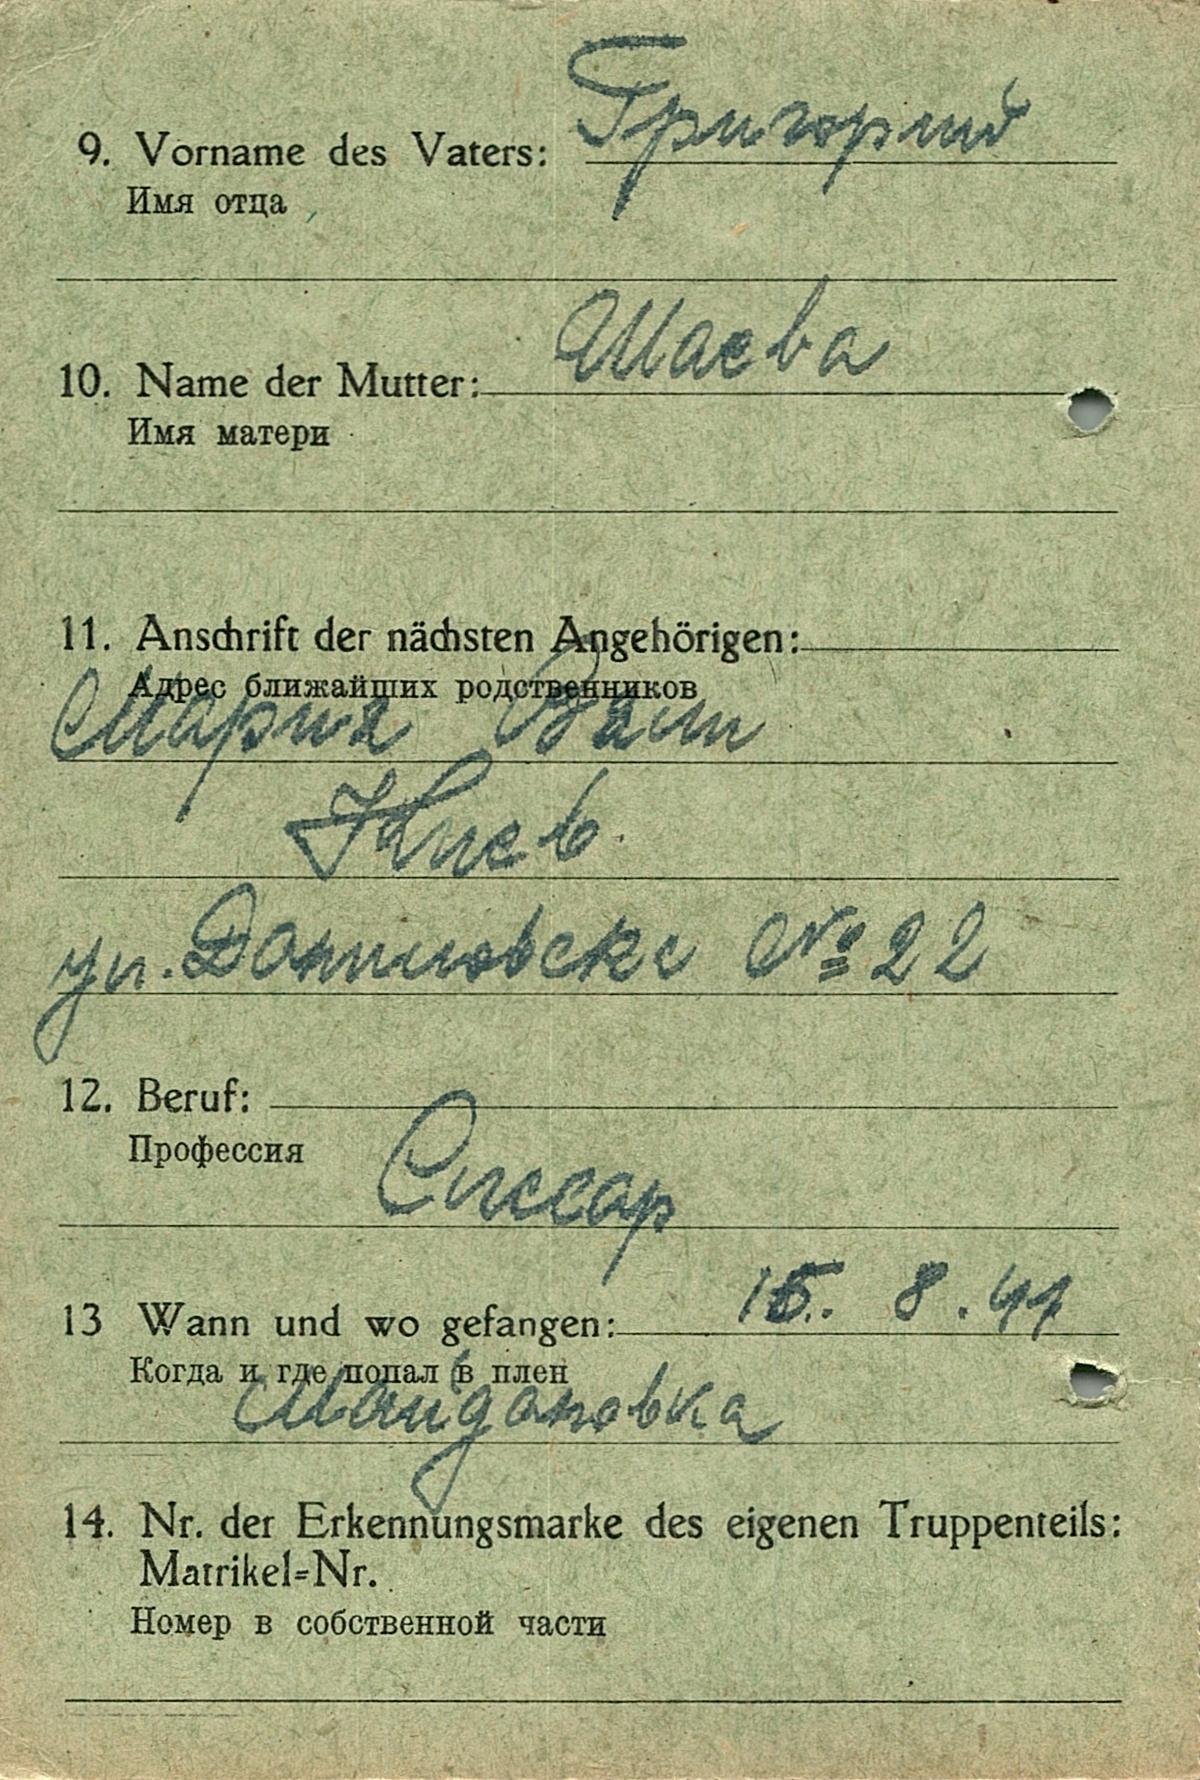 9. Vorname des Vaters: Григорий
Имя отца
10. Name der Mutter: Шаева
Имя матери
11. Anschrift der nächsten Angehörigen:
Адрес ближайших родственников
Мария
Киев
ул. № 22
12. Beruf:
Профессия
Слесар
13 Wann und wo gefangen: 15. 8. 41
Когда и где попал в плен
Майдановка
14. Nr. der Erkennungsmarke des eigenen Truppenteils:
Matrikel=Nr.
Номер в собственной части